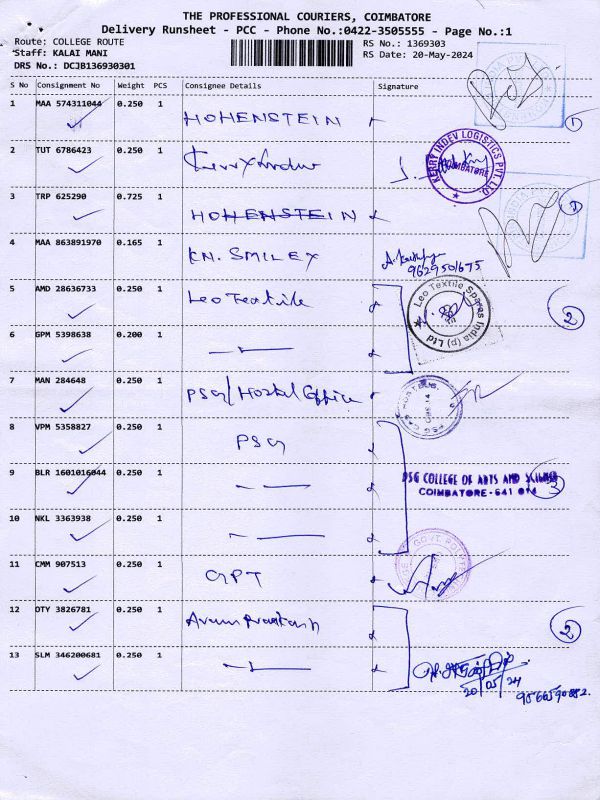 THE PROFESSIONAL COURIERS, COIMBATORE
Delivery Runsheet - PCC - Phone No.:0422-3505555 - Page No.:1
Route: COLLEGE ROUTE RS No.: 1369303
Staff: KALAI MANI RS Date: 20-May-2024
DRS No.: DCJB136930301
S No Consignment No Weight PCS Consignee Details Signature
1 MAA 574311044 0.250 1 HOHENSTEIN 1
2 TUT 6786423 0.250 1 KERRY INDEV LOGISTICS PVT. LTD. COIMBATORE
3 TRP 625290 0.725 1 HOHENSTEIN 1
4 MAA 863891970 0.165 1 KN. SMILEX
9629501675
5 AMD 28636733 0.250 1 Leo Textile Leo Textile Spares India (p) Ltd 2
6 GPM 5398638 0.200 1
7 MAN 284648 0.250 1 PSG/Hostel Office
8 VPM 5358827 0.250 1 PSG
9 BLR 1601016044 0.250 1 PSG COLLEGE OF ARTS AND SCIENCE 3
COIMBATORE-641 014
10 NKL 3363938 0.250 1
11 CMM 907513 0.250 1 GPT GOVT.
12 OTY 3826781 0.250 1 Arun Prakash 2
13 SLM 346200681 0.250 1
20/05/24
9566590882.